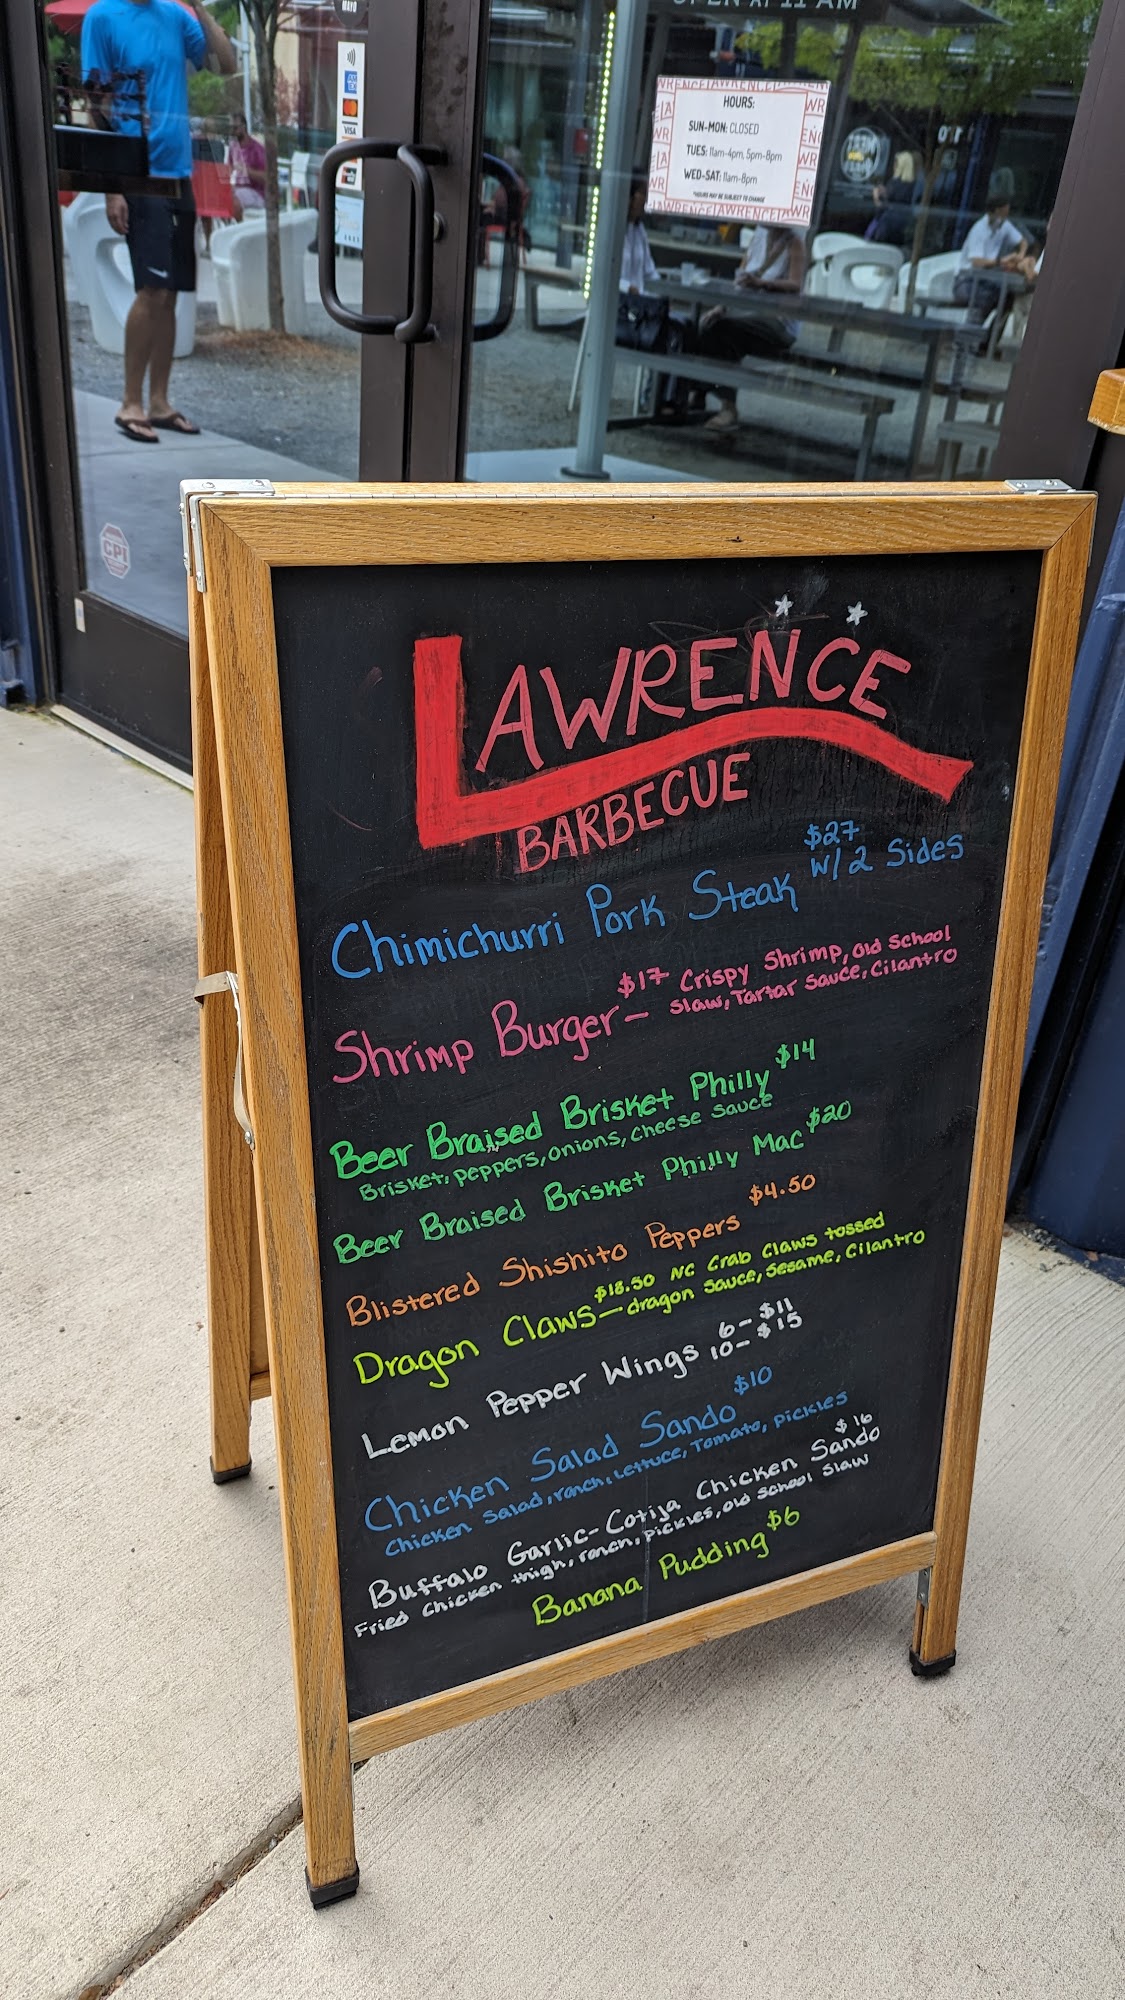 MAYO
OPEN AT 11 AM
VISA
HOURS:
SUN-MON: CLOSED
TUES: 11am-4pm, 5pm-8pm
WED-SAT: 11am-8pm
*HOURS MAY BE SUBJECT TO CHANGE
CPI
LAWRENCE
BARBECUE
Chimichurri Pork Steak $27 w/ 2 Sides
Shrimp Burger - $17 Crispy Shrimp, old School
Slaw, Tartar Sauce, Cilantro
Beer Braised Brisket Philly $14
Brisket, peppers, onions, cheese sauce
Beer Braised Brisket Philly Mac $20
Blistered Shishito Peppers $4.50
Dragon Claws - $18.50 NC Crab Claws tossed
dragon sauce, sesame, cilantro
Lemon Pepper Wings 6 - $11
10 - $15
Chicken Salad Sando $10
Chicken Salad, ranch, Lettuce, Tomato, pickles
Buffalo Garlic-Cotija Chicken Sando $16
Fried Chicken thigh, ranch, pickles, old School Slaw
Banana Pudding $6